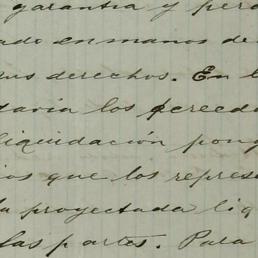 garantia y per
ado en manos de
sus derechos. En l
daria los creedo
liquidación pong
ios que los represe
la proyectada liq
las partes. Para